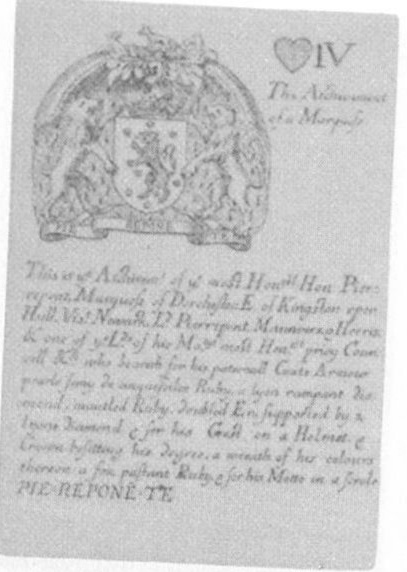 IV
The Atchivement
of a Marquess
PIE REPONE TE
This is ye Atchivemt of ye most Honble Hen Pier=
repont, Marquess of Dorchester E of Kingston upon
Hull, Vist Newark, Ld Pierrepont Mannvers & Herris
& one of ye Lds of his Matys most Honble privy Coun
cell &ct who beareth for his paternall Coate Armour
pearle semy de cinquefoiles Ruby a lyon rampant dia
mond, mantled Ruby, doubled Er: supported by 2
lyons Diamond & for his Crest on a Helmet &
Crown befitting his degree, a wreath of his colours
thereon a fox passant Ruby & for his Motto in a scrole
PIE·REPONE·TE